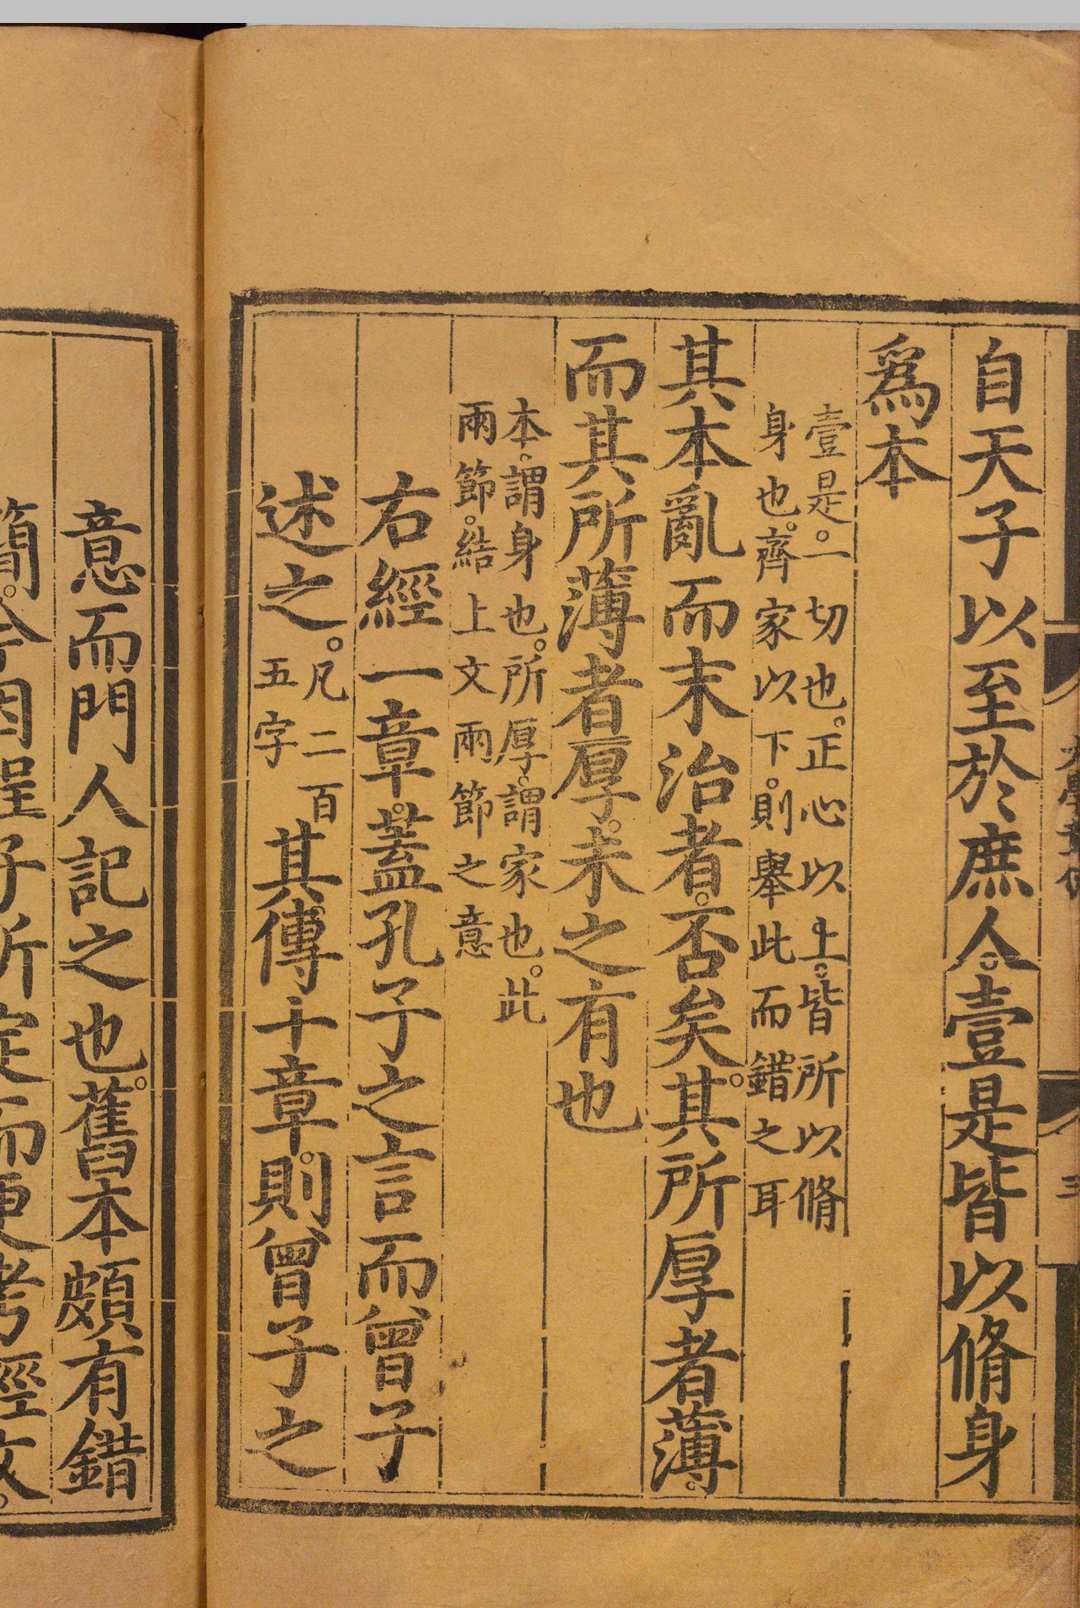 自天子以至於庶人。壹是皆以脩身
爲本
壹是。一切也。正心以上。皆所以脩
身也。齊家以下。則舉此而錯之耳
其本亂而末治者。否矣。其所厚者薄。
而其所薄者厚。未之有也
本。謂身也。所厚。謂家也。此
兩節。結上文兩節之意
右經一章。蓋孔子之言而曾子
述之。凡二百
五字
其傳十章。則曾子之
意而門人記之也。舊本頗有錯
簡。今因程子所定。而更考經文。